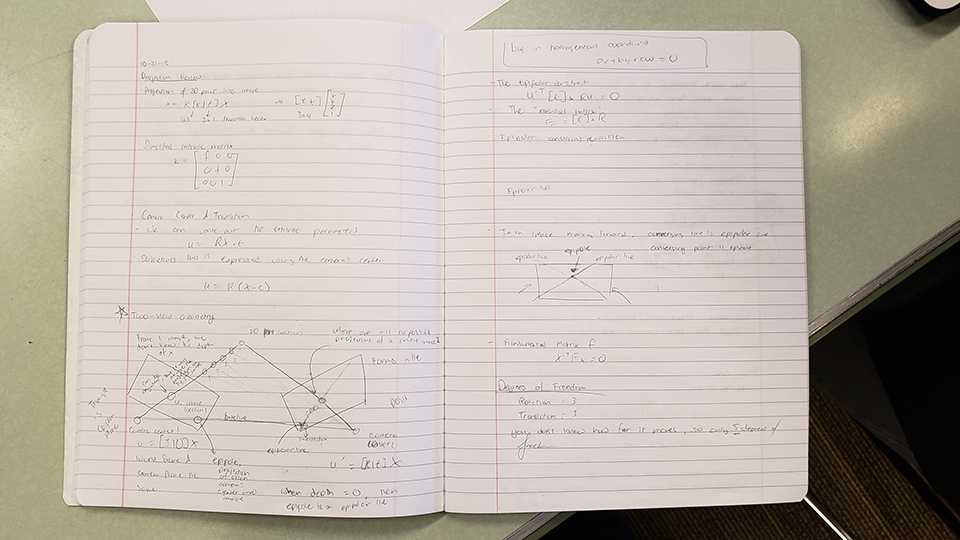 10-21-15
Projection Review
Projection of 3D point into image
x = K[R|t]X → [R t] [x y z 1]
3x3 3x1 translation vector 3x4
- Simplified intrinsic matrix
K = [f 0 0
0 f 0
0 0 1]
Camera Center & Translation
- We can write out the extrinsic parameters
u = RX+t
- Sometimes this is expressed using the camera center
u = R(X-c)
Two-view geometry
Frame 1 image, we
don't know the depth
of x
3D
where are all the possible
projections of
forms a line
This is
epipolar
plane
baseline
camera center 1
camera
center 2
epipolar line
u = [I|0]X
u' = [R|t]X
World frame &
camera frame the
same
epipole,
projection
of other
camera
center onto
image
when depth = 0, then
epipole is on epipolar line
Live in homogeneous coordinates
au+bv+cw = 0
- The Epipolar constraint
u'ᵀ[t]ₓ Ru = 0
- The "essential matrix"
E = [t]ₓR
- Epipolar constraint rewritten
- Epipolar lines
- In an image moving forward, converging line is epipolar line
converging point is epipole
epipole
epipolar line epipolar line
- Fundamental Matrix F
x'ᵀFx = 0
Degrees of Freedom:
Rotation : 3
Translation : 3
you don't know how far it moves, so only 5 degrees of
freedom